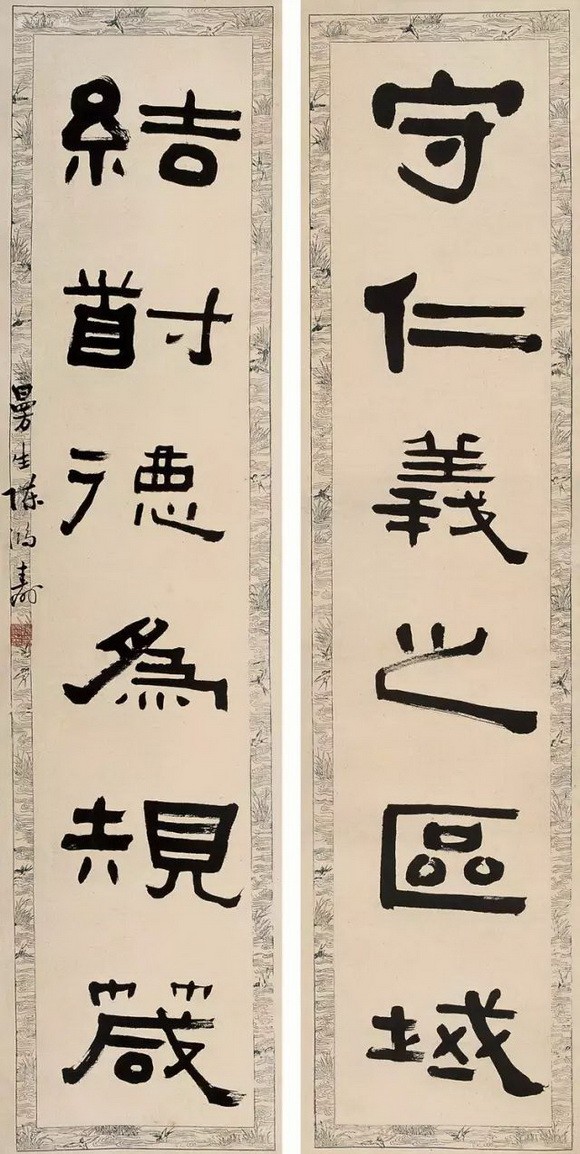 守仁義之區域
結道德為規箴
曼生陳鴻壽